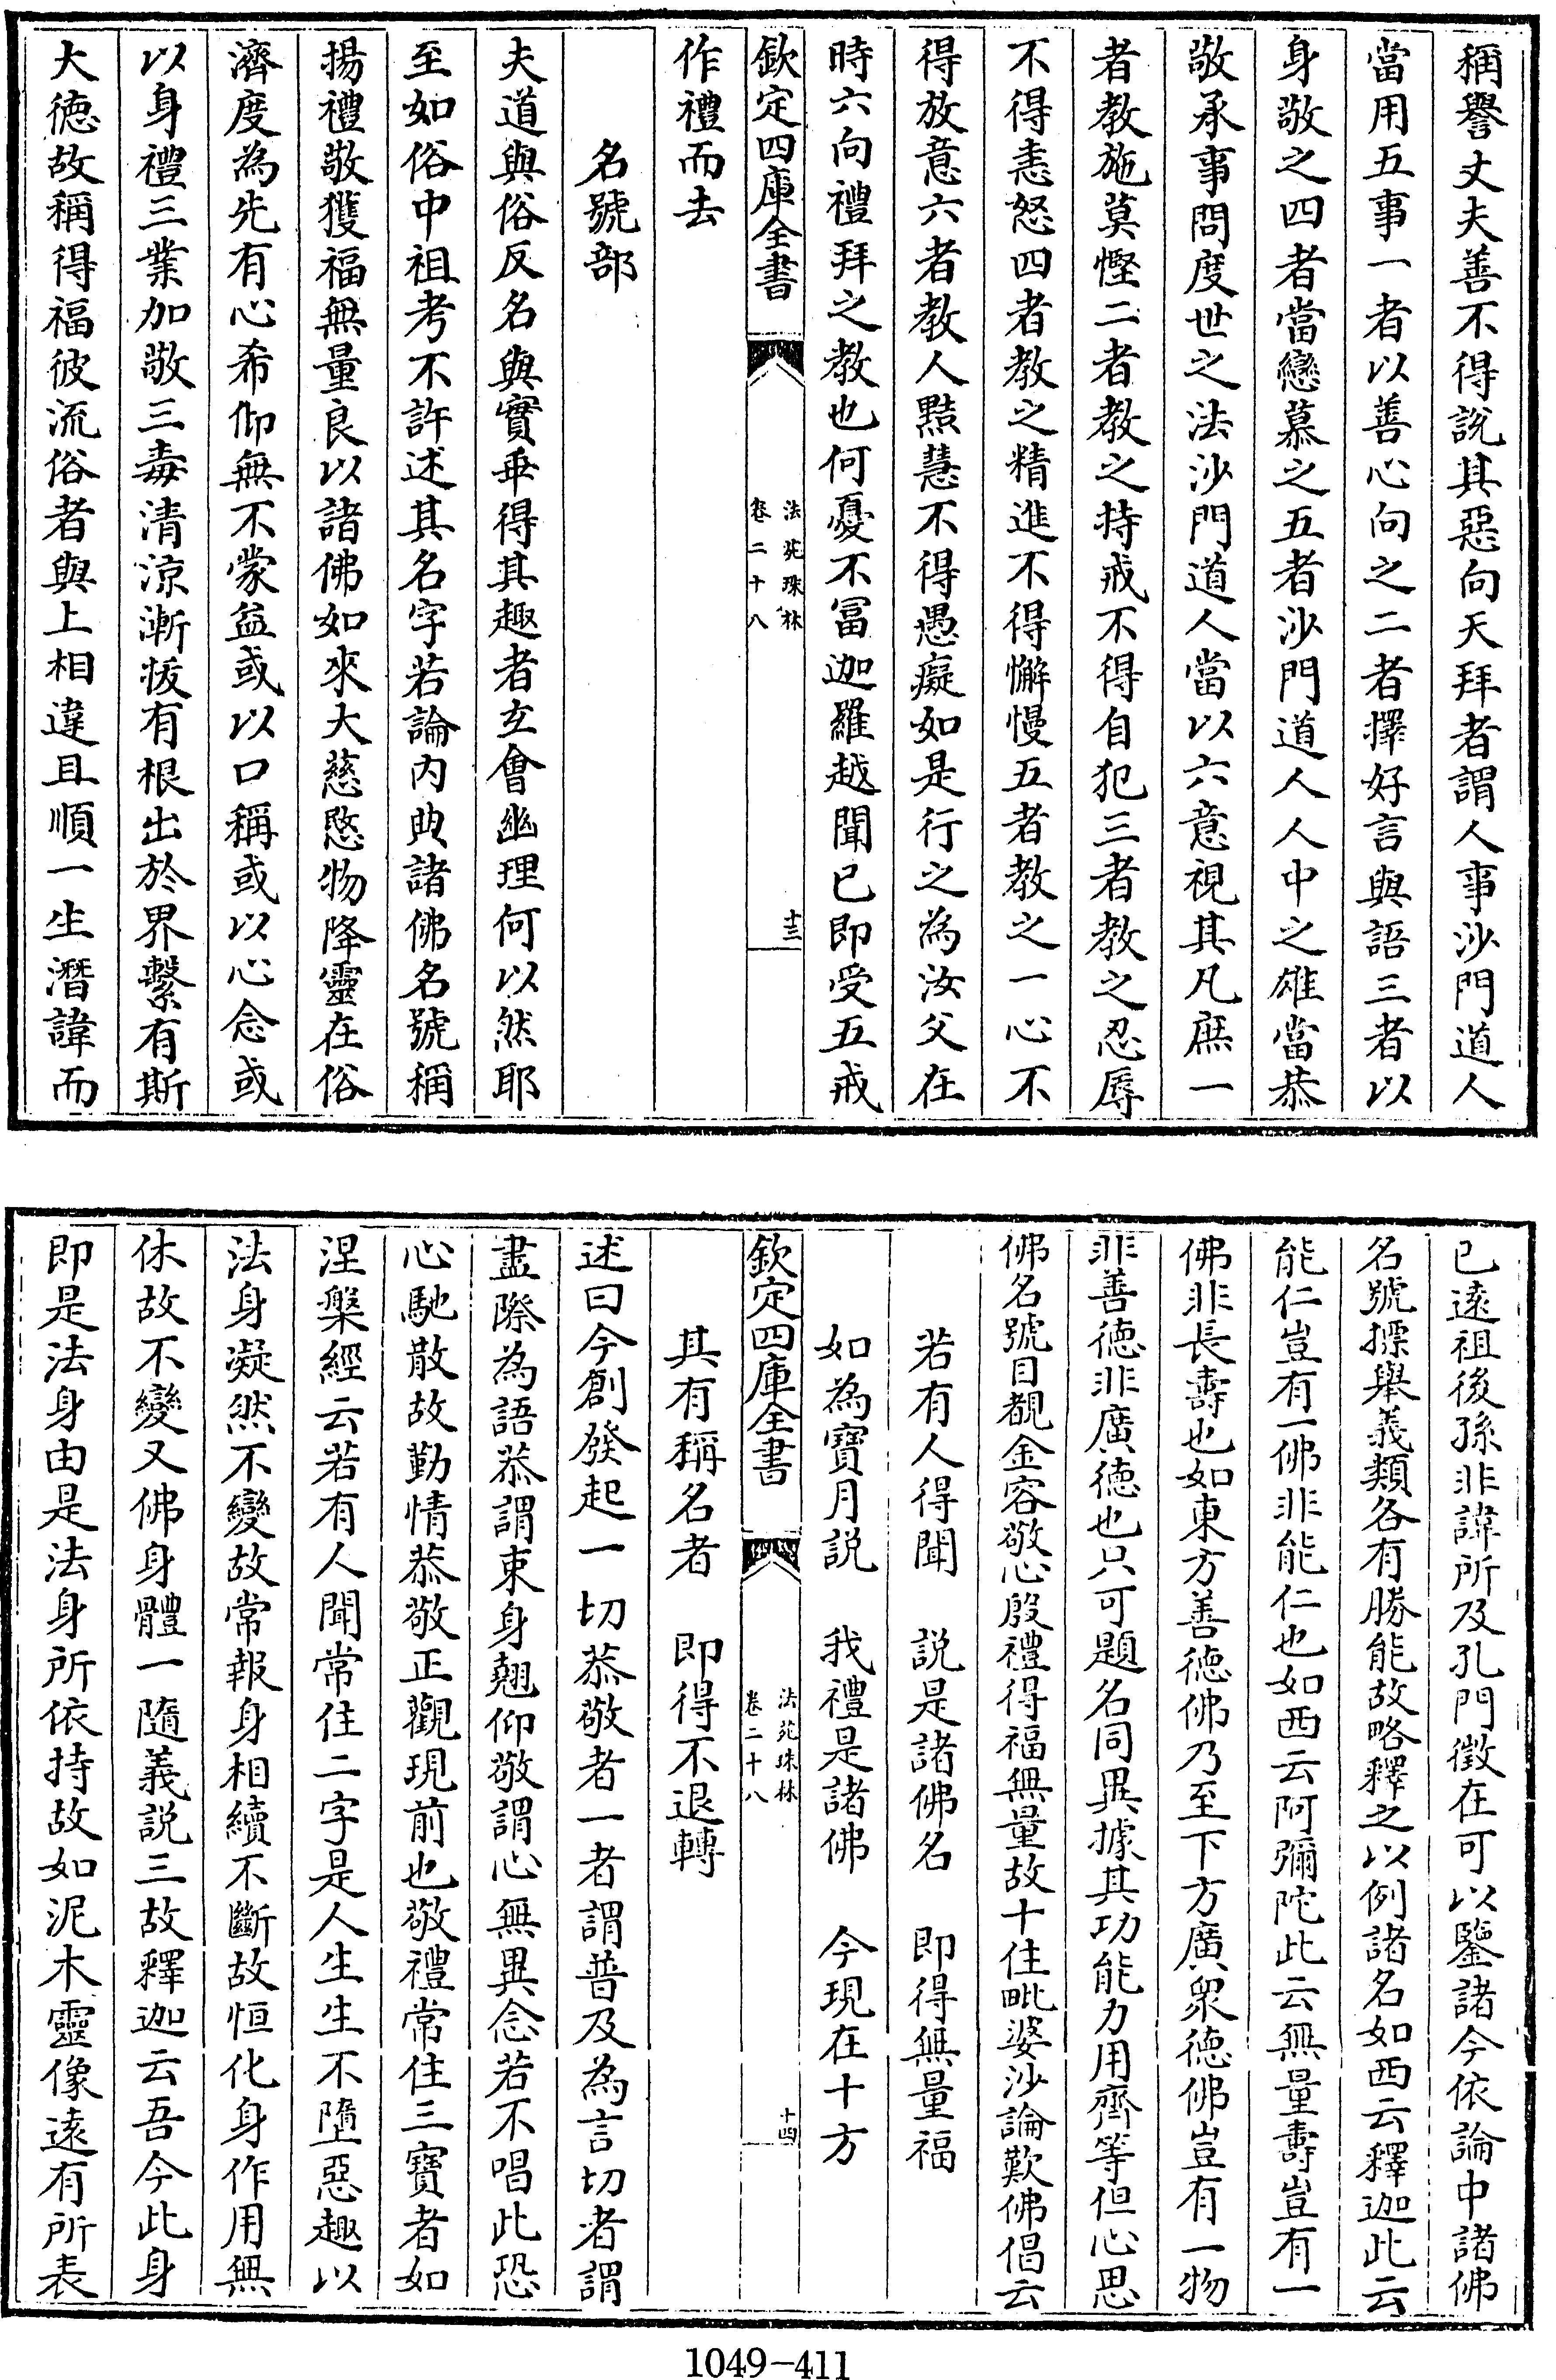 稱譽丈夫善不得說其惡向天拜者謂人事沙門道人
當用五事一者以善心向之二者擇好言與語三者以
身敬之四者當戀慕之五者沙門道人人中之雄當恭
敬承事問度世之法沙門道人當以六意視其凡庶一
者教施莫慳二者教之持戒不得自犯三者教之忍辱
不得恚怒四者教之精進不得懈慢五者教之一心不
得放意六者教人黠慧不得愚癡如是行之為汝父在
時六向禮拜之教也何憂不富迦羅越聞已即受五戒
欽定四庫全書
法苑珠林
卷二十八
十三
作禮而去
名號部
夫道與俗反名與實乖得其趣者玄會幽理何以然耶
至如俗中祖考不許述其名字若論內典諸佛名號稱
揚禮敬獲福無量良以諸佛如來大慈愍物降靈在俗
濟度為先有心希仰無不蒙益或以口稱或以心念或
以身禮三業加敬三毒清涼漸拔有根出於界繫有斯
大德故稱得福彼流俗者與上相違且順一生潛諱而
已遠祖後孫非諱所及孔門徵在可以鑒諸今依論中諸佛
名號摽舉義類各有勝能故略釋之以例諸名如西云釋迦此云
能仁豈有一佛非能仁也如西云阿彌陀此云無量壽豈有一
佛非長壽也如東方善德佛乃至下方廣眾德佛豈有一物
非善德非廣德也只可題名同異據其功能力用齊等但心思
佛名號目覩金容敬心殷禮得福無量故十住毗婆沙論歎佛偈云
若有人得聞　說是諸佛名　即得無量福
如為寶月説　我禮是諸佛　今現在十方
欽定四庫全書
法苑珠林
卷二十八
十四
其有稱名者　即得不退轉
述曰今創發起一切恭敬者一者謂普及為言切者謂
盡際為語恭謂束身翹仰敬謂心無異念若不唱此恐
心馳散故勤情恭敬正觀現前也敬禮常住三寶者如
涅槃經云若有人聞常住二字是人生生不墮惡趣以
法身凝然不變故常報身相續不斷故恒化身作用無
休故不變又佛身體一隨義説三故釋迦云吾今此身
即是法身由是法身所依持故如泥木靈像遠有所表
1049-411